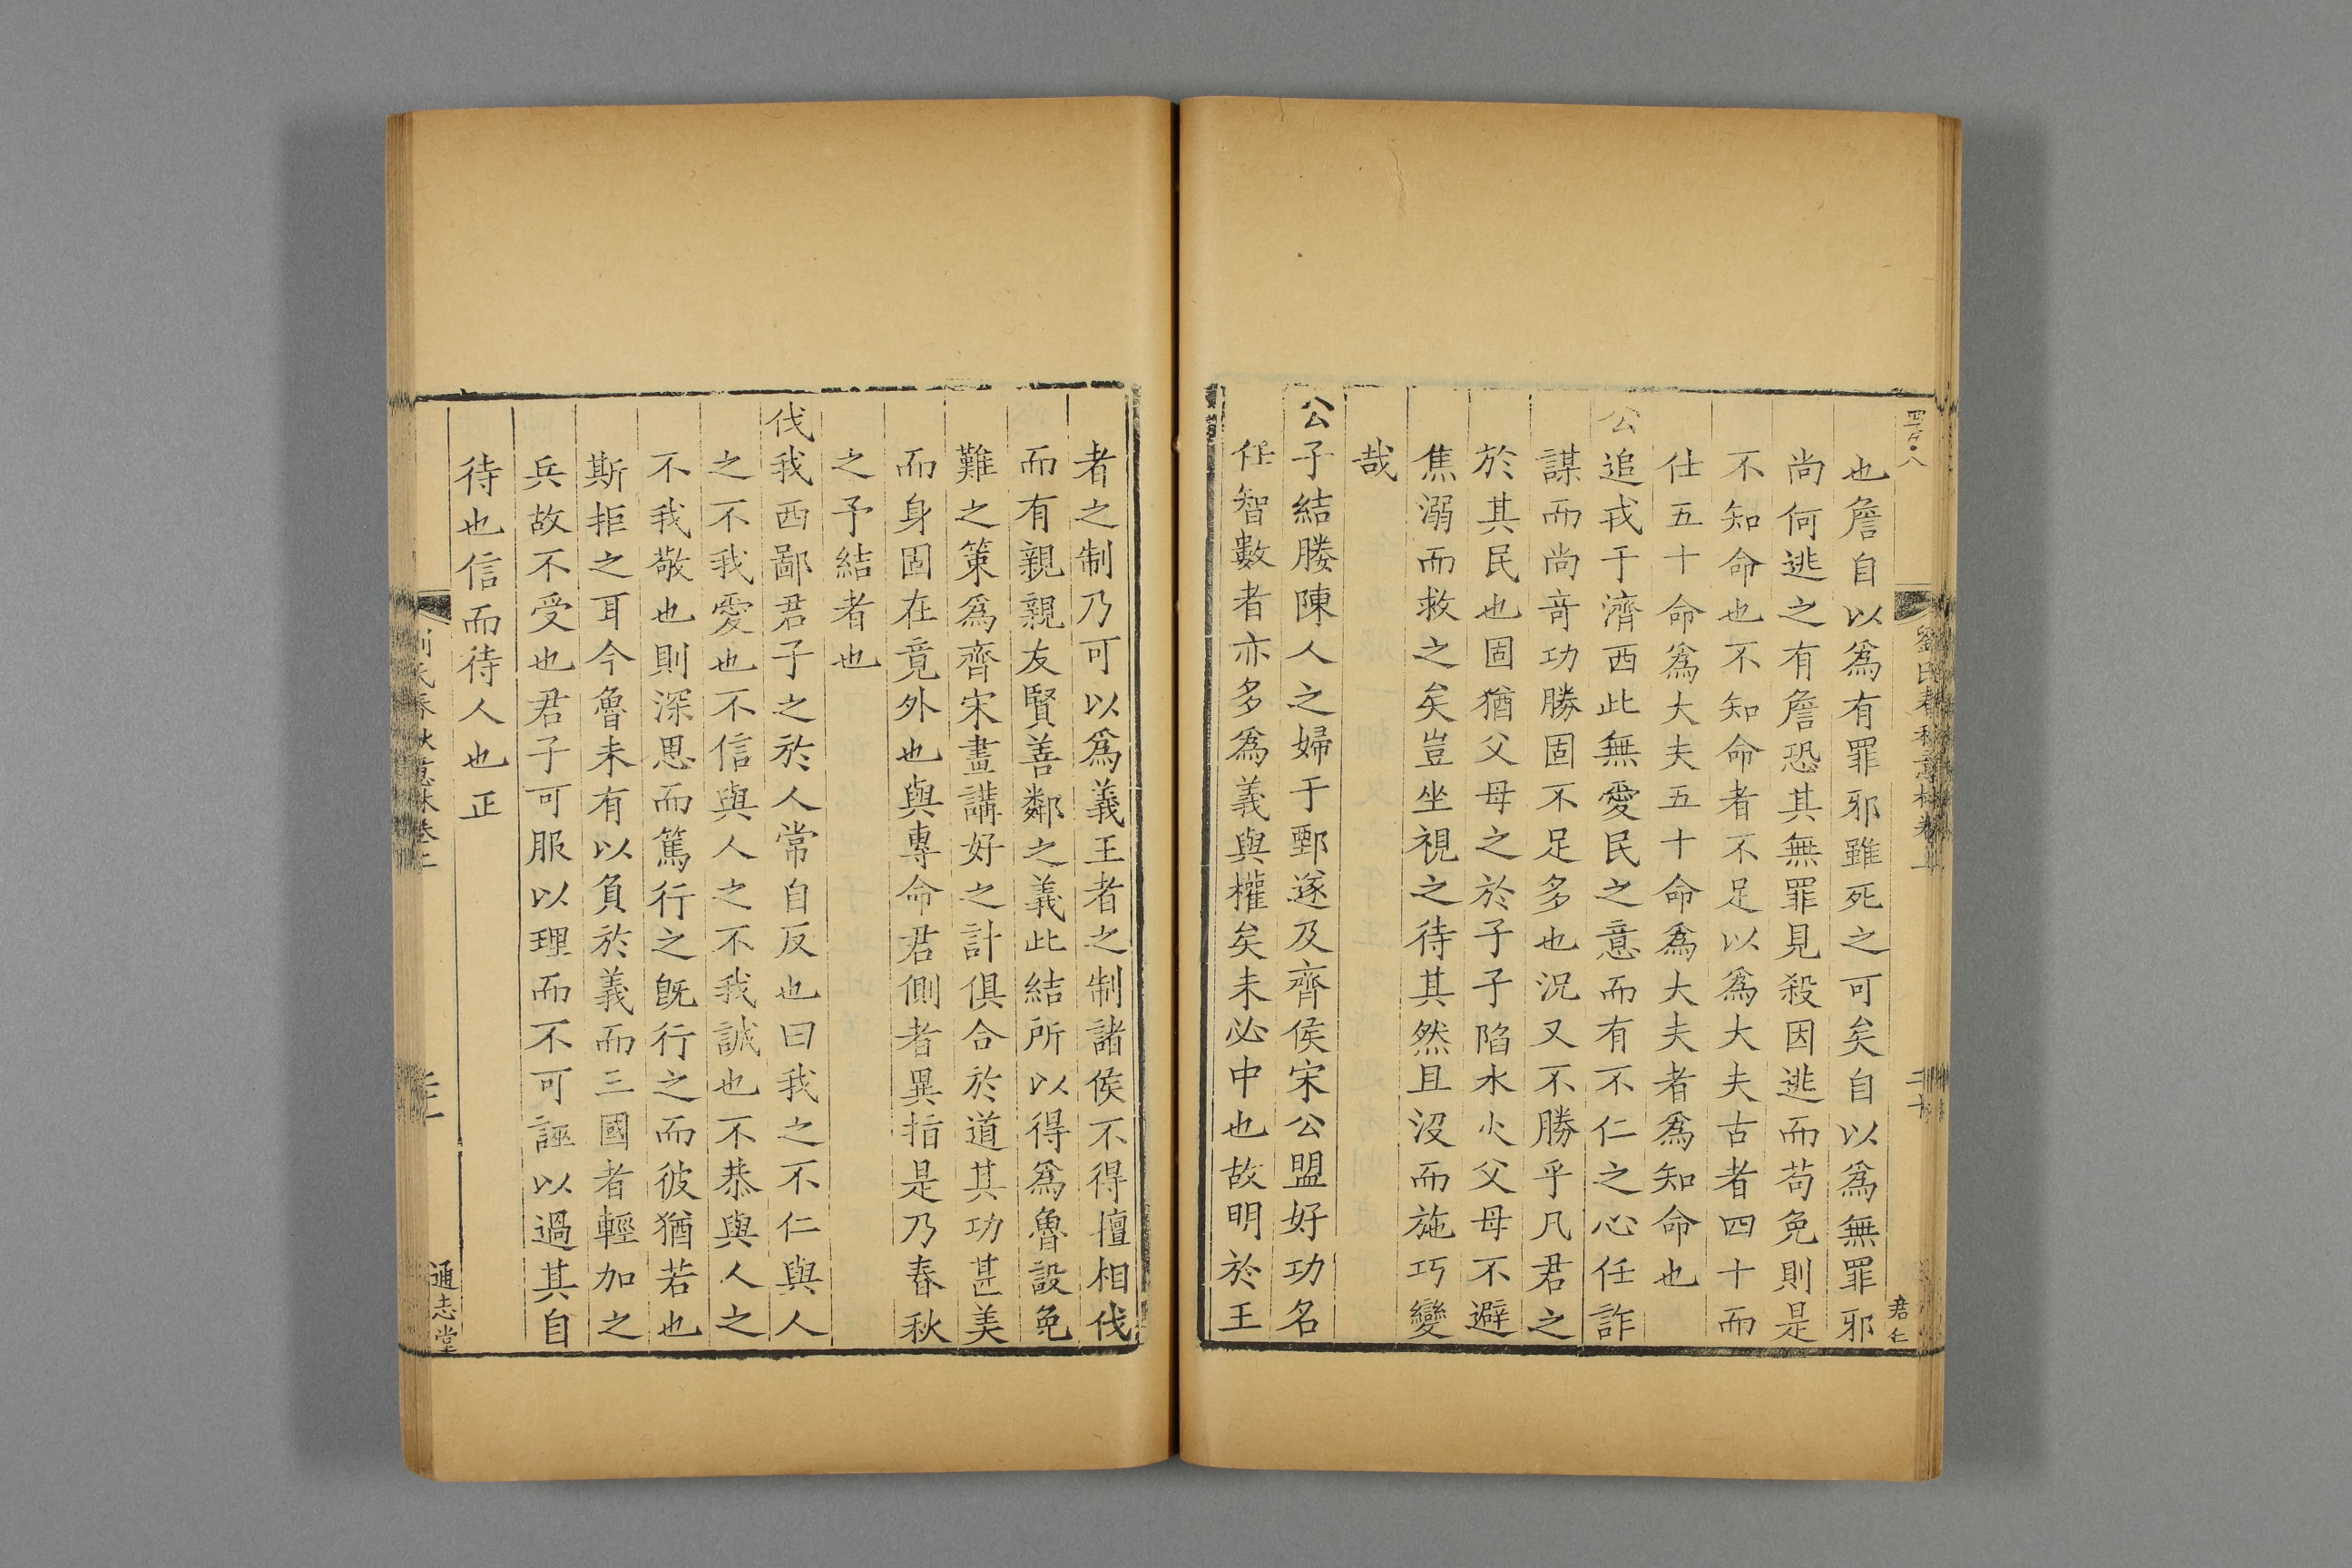 劉氏春秋意林卷上
二十
君仁
也詹自以爲有罪邪雖死之可矣自以爲無罪邪
尚何逃之有詹恐其無罪見殺因逃而苟免則是
不知命也不知命者不足以爲大夫古者四十而
仕五十命爲大夫五十命爲大夫者爲知命也
公追戎于濟西此無愛民之意而有不仁之心任詐
謀而尚奇功勝固不足多也況又不勝乎凡君之
於其民也固猶父母之於子子陷水火父母不避
焦溺而救之矣豈坐視之待其然且沒而施巧變
哉
公子結媵陳人之婦于鄄遂及齊侯宋公盟好功名
任智數者亦多爲義與權矣未必中也故明於王
者之制乃可以爲義王者之制諸侯不得擅相伐
而有親親友賢善鄰之義此結所以得爲魯設免
難之策爲齊宋畫講好之計俱合於道其功甚美
而身固在竟外也與專命君側者異指是乃春秋
之予結者也
伐我西鄙君子之於人常自反也曰我之不仁與人
之不我愛也不信與人之不我誠也不恭與人之
不我敬也則深思而篤行之旣行之而彼猶若也
斯拒之耳今魯未有以負於義而三國者輕加之
兵故不受也君子可服以理而不可誣以過其自
待也信而待人也正
劉氏春秋意林卷上
通志堂